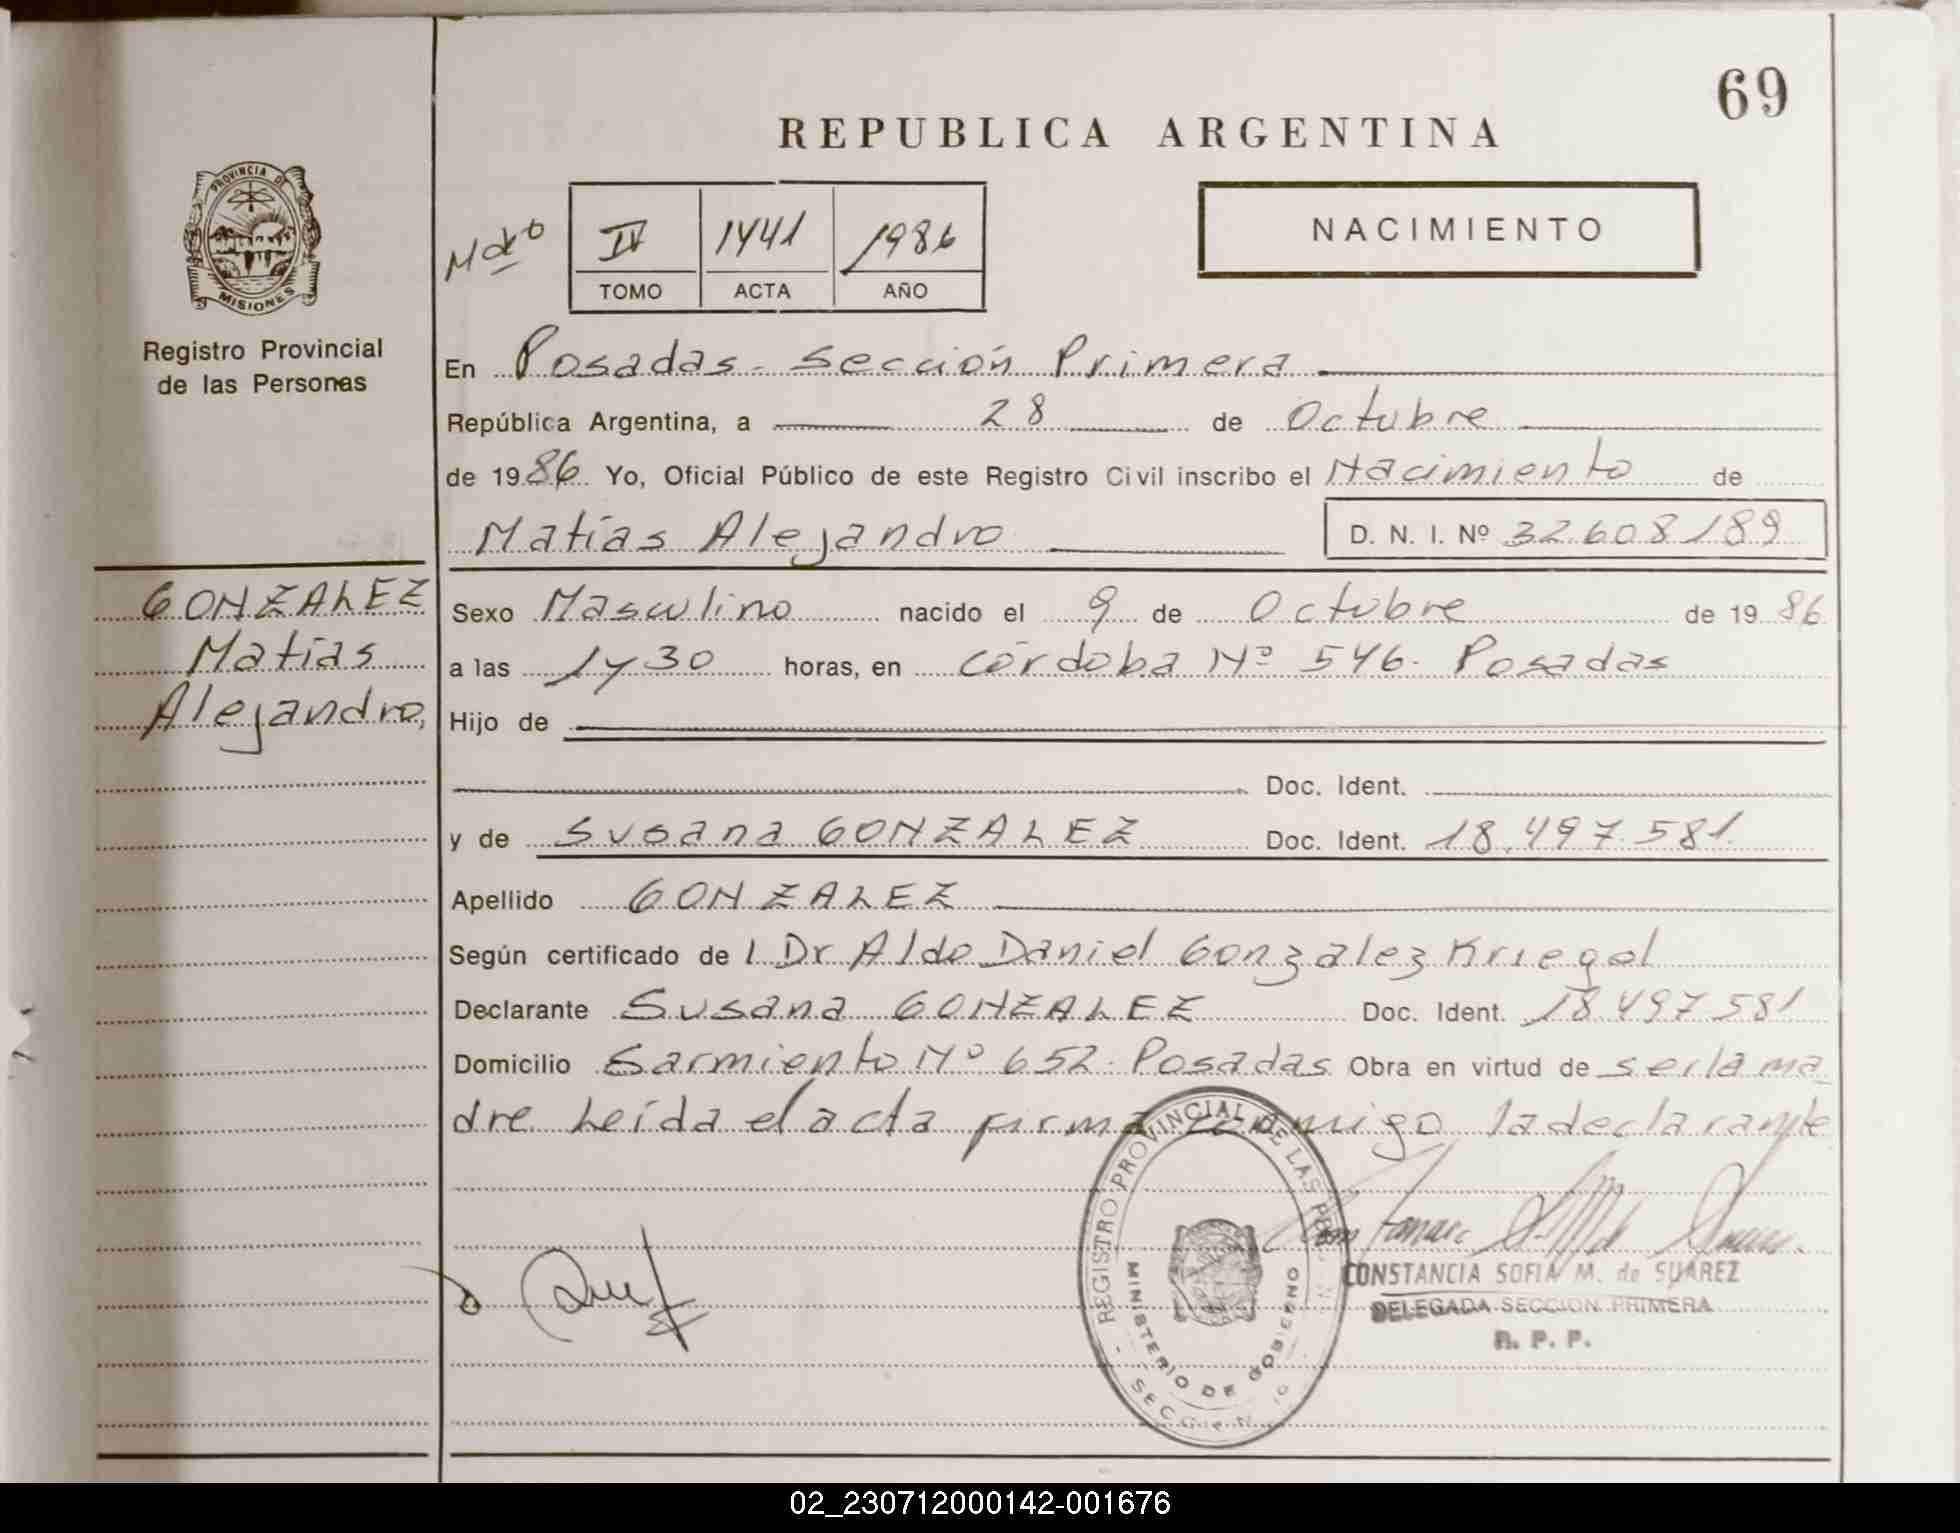 69
REPUBLICA ARGENTINA
PROVINCIA DE
MISIONES
Registro Provincial
de las Personas
IV 1441 1986
TOMO ACTA AÑO
NACIMIENTO
En Posadas - Sección Primera
República Argentina, a 28 de Octubre
de 1986. Yo, Oficial Público de este Registro Civil inscribo el Nacimiento de
Matías Alejandro D. N. I. Nº 32.608.189
GONZALEZ
Matías
Alejandro,
Sexo Masculino nacido el 9 de Octubre de 1986
a las 1 y 30 horas, en Córdoba Nº 546. Posadas
Hijo de
Doc. Ident.
y de Susana GONZALEZ Doc. Ident. 18.497.581.
Apellido GONZALEZ
Según certificado del Dr Aldo Daniel Gonzalez Kriegel
Declarante Susana GONZALEZ Doc. Ident. 18.497.581
Domicilio Sarmiento Nº 652. Posadas Obra en virtud de ser la ma
dre Leída el acta firma conmigo la declarante
REGISTRO PROVINCIAL DE LAS
MINISTERIO DE GOBIERNO
CONSTANCIA SOFIA M. de SUAREZ
DELEGADA SECCION PRIMERA
R. P. P.
02_230712000142-001676